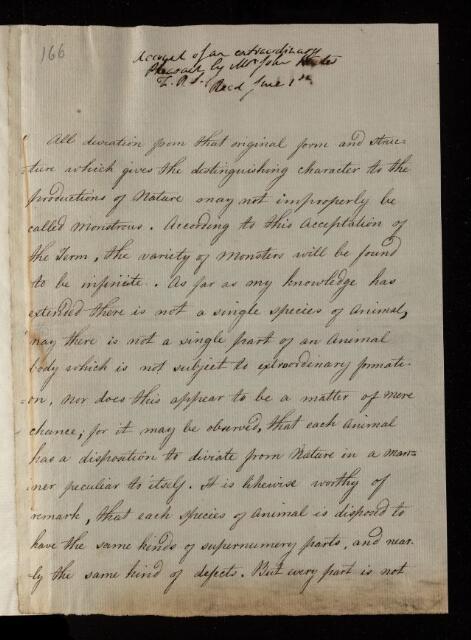 166
Account of an extraordinary
Pheasant by Mr John Hunter
F.R.S. Read June 1st
All deviation from that original form and struc-
ture which gives the distinguishing character to the
productions of Nature may not improperly be
called Monstrous. According to this Acceptation of
the Term, the variety of Monsters will be found
to be infinite. As far as my knowledge has
extended there is not a single species of Animal,
nay there is not a single part of an Animal
body which is not subject to extraordinary formati-
on, nor does this appear to be a matter of mere
chance; for it may be observed, that each Animal
has a disposition to diviate from Nature in a man-
ner peculiar to itself. It is likewise worthy of
remark, that each species of Animal is disposed to
have the same kinds of supernumery parts, and near-
ly the same kind of defects. But every part is not